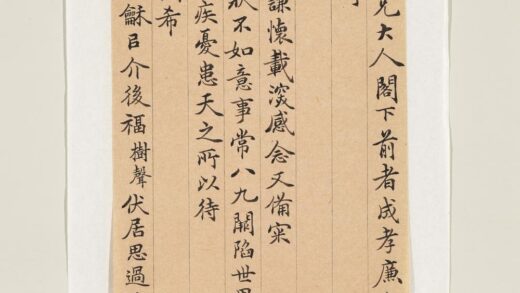 兄大人閣下前者成孝廉
謙懷載㴱感念又備宷
狀不如意事常八九闕陷世界
疾憂患天之所以待
希
龢㠯介後福樹聲伏居思過